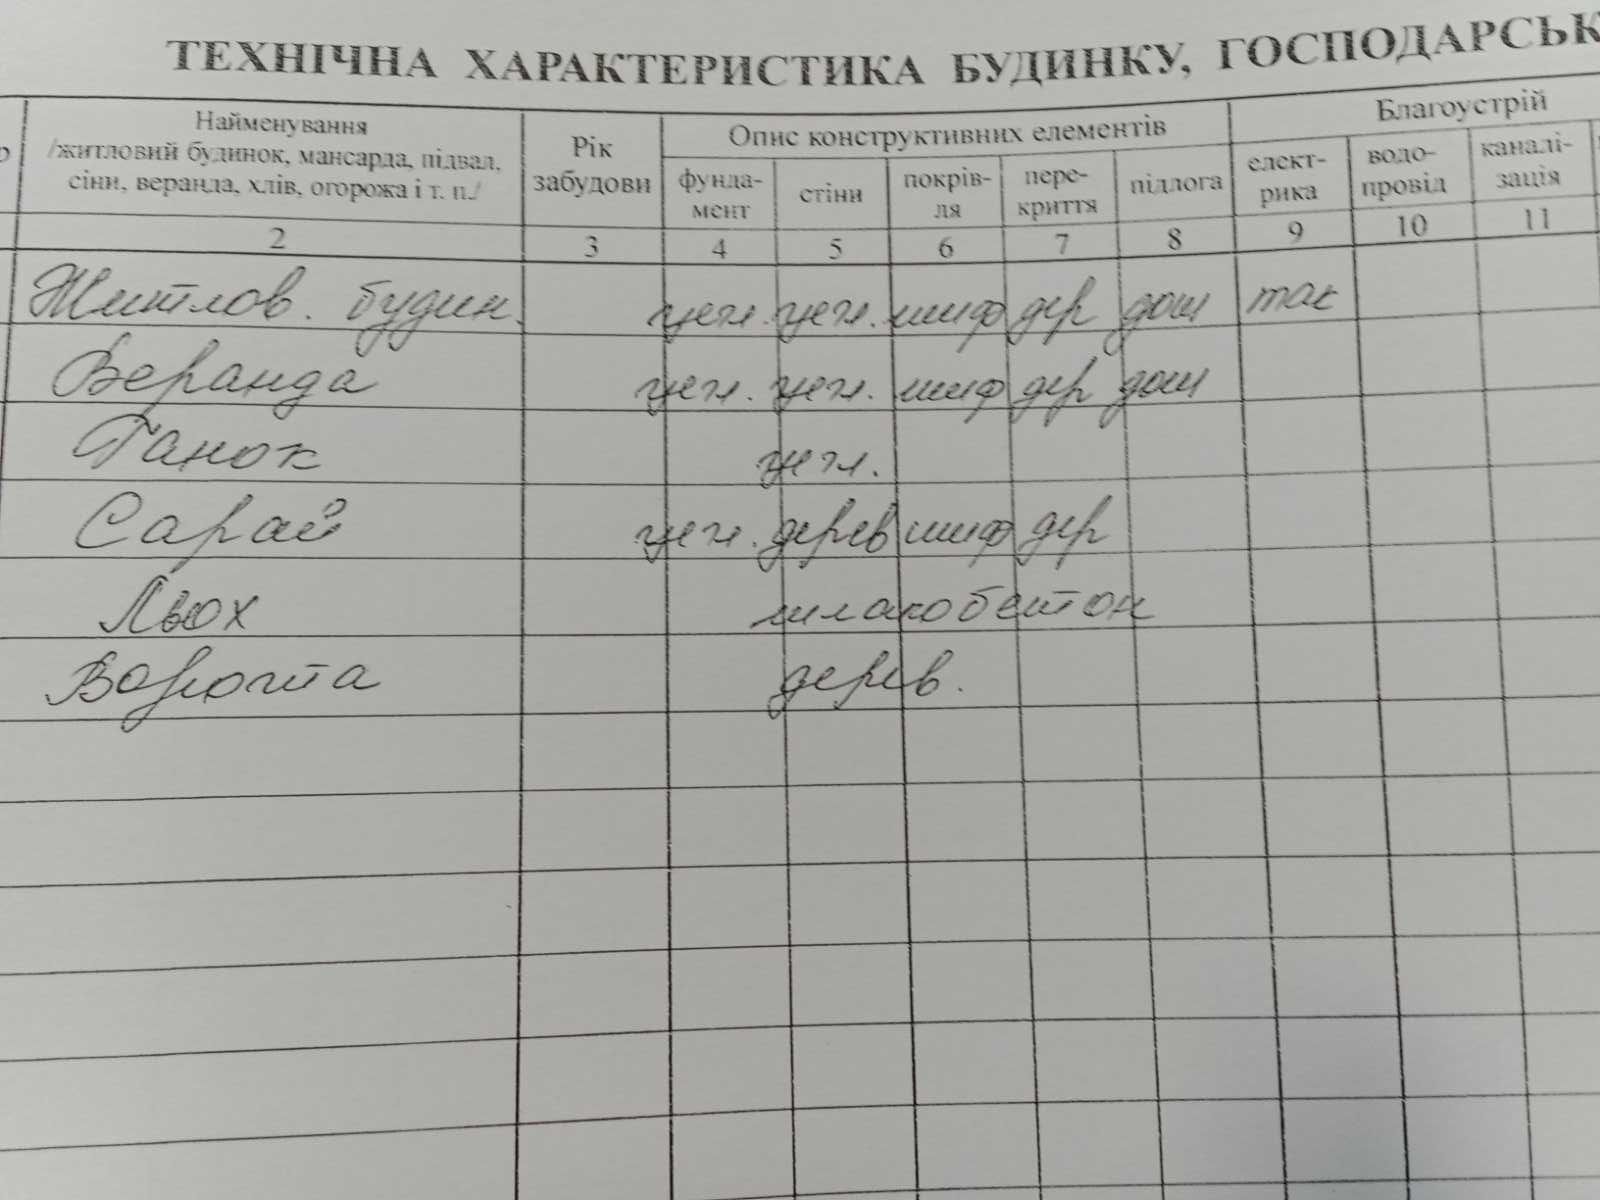 ТЕХНІЧНА ХАРАКТЕРИСТИКА БУДИНКУ, ГОСПОДАРСЬК
Найменування
/житловий будинок, мансарда, підвал,
сіни, веранда, хлів, огорожа і т. п./
Рік
забудови
Опис конструктивних елементів
Благоустрій
фунда-
мент
стіни
покрів-
ля
пере-
криття
підлога
елект-
рика
водо-
провід
каналі-
зація
2 3 4 5 6 7 8 9 10 11
Житлов. будин. цегл. цегл. шиф дер дош так
Веранда цегл. цегл. шиф дер дош
Ганок цегл.
Сарай цегл. дерев шиф дер
Льох шлакобетон
Ворота дерев.